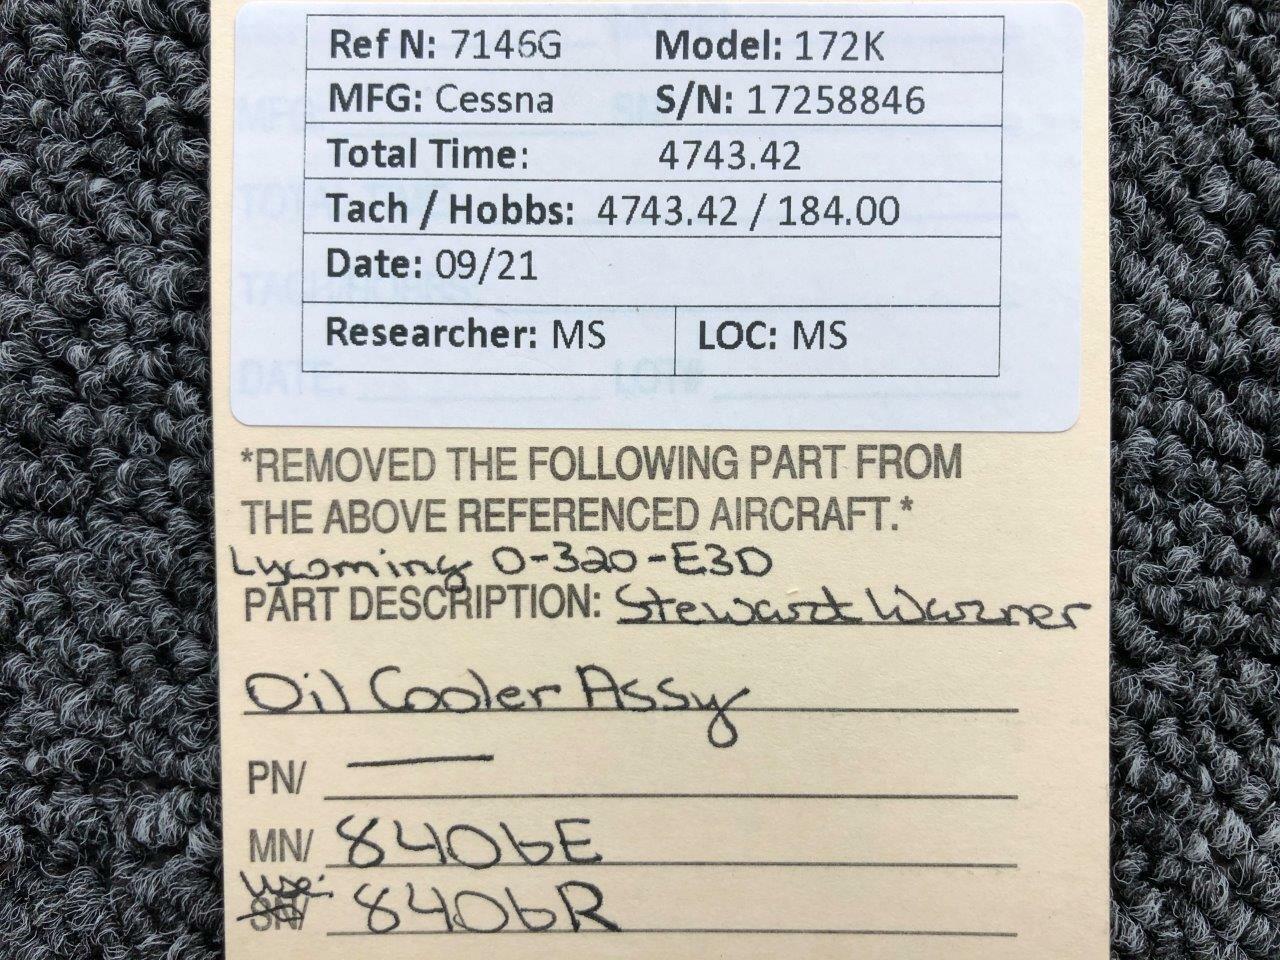 Ref N: 7146G Model: 172K
MFG: Cessna S/N: 17258846
Total Time: 4743.42
Tach / Hobbs: 4743.42 / 184.00
Date: 09/21
Researcher: MS LOC: MS
TOTAL TIME:
TACH/HOBBS:
DATE: LOT#
*REMOVED THE FOLLOWING PART FROM
THE ABOVE REFERENCED AIRCRAFT.*
Lycoming O-320-E3D
PART DESCRIPTION: Stewart Warner
Oil Cooler Assy
PN/ —
MN/ 8406E
use: SN/ 8406R